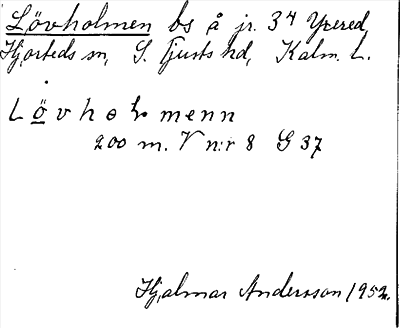 Lövholmen bs å jr. 34 Yxered
Hjorteds sn, S. Tjusts hd, Kalm. L.
Lövholmenn
200 m. V n:r 8 G 37
Hjalmar Andersson 1952.